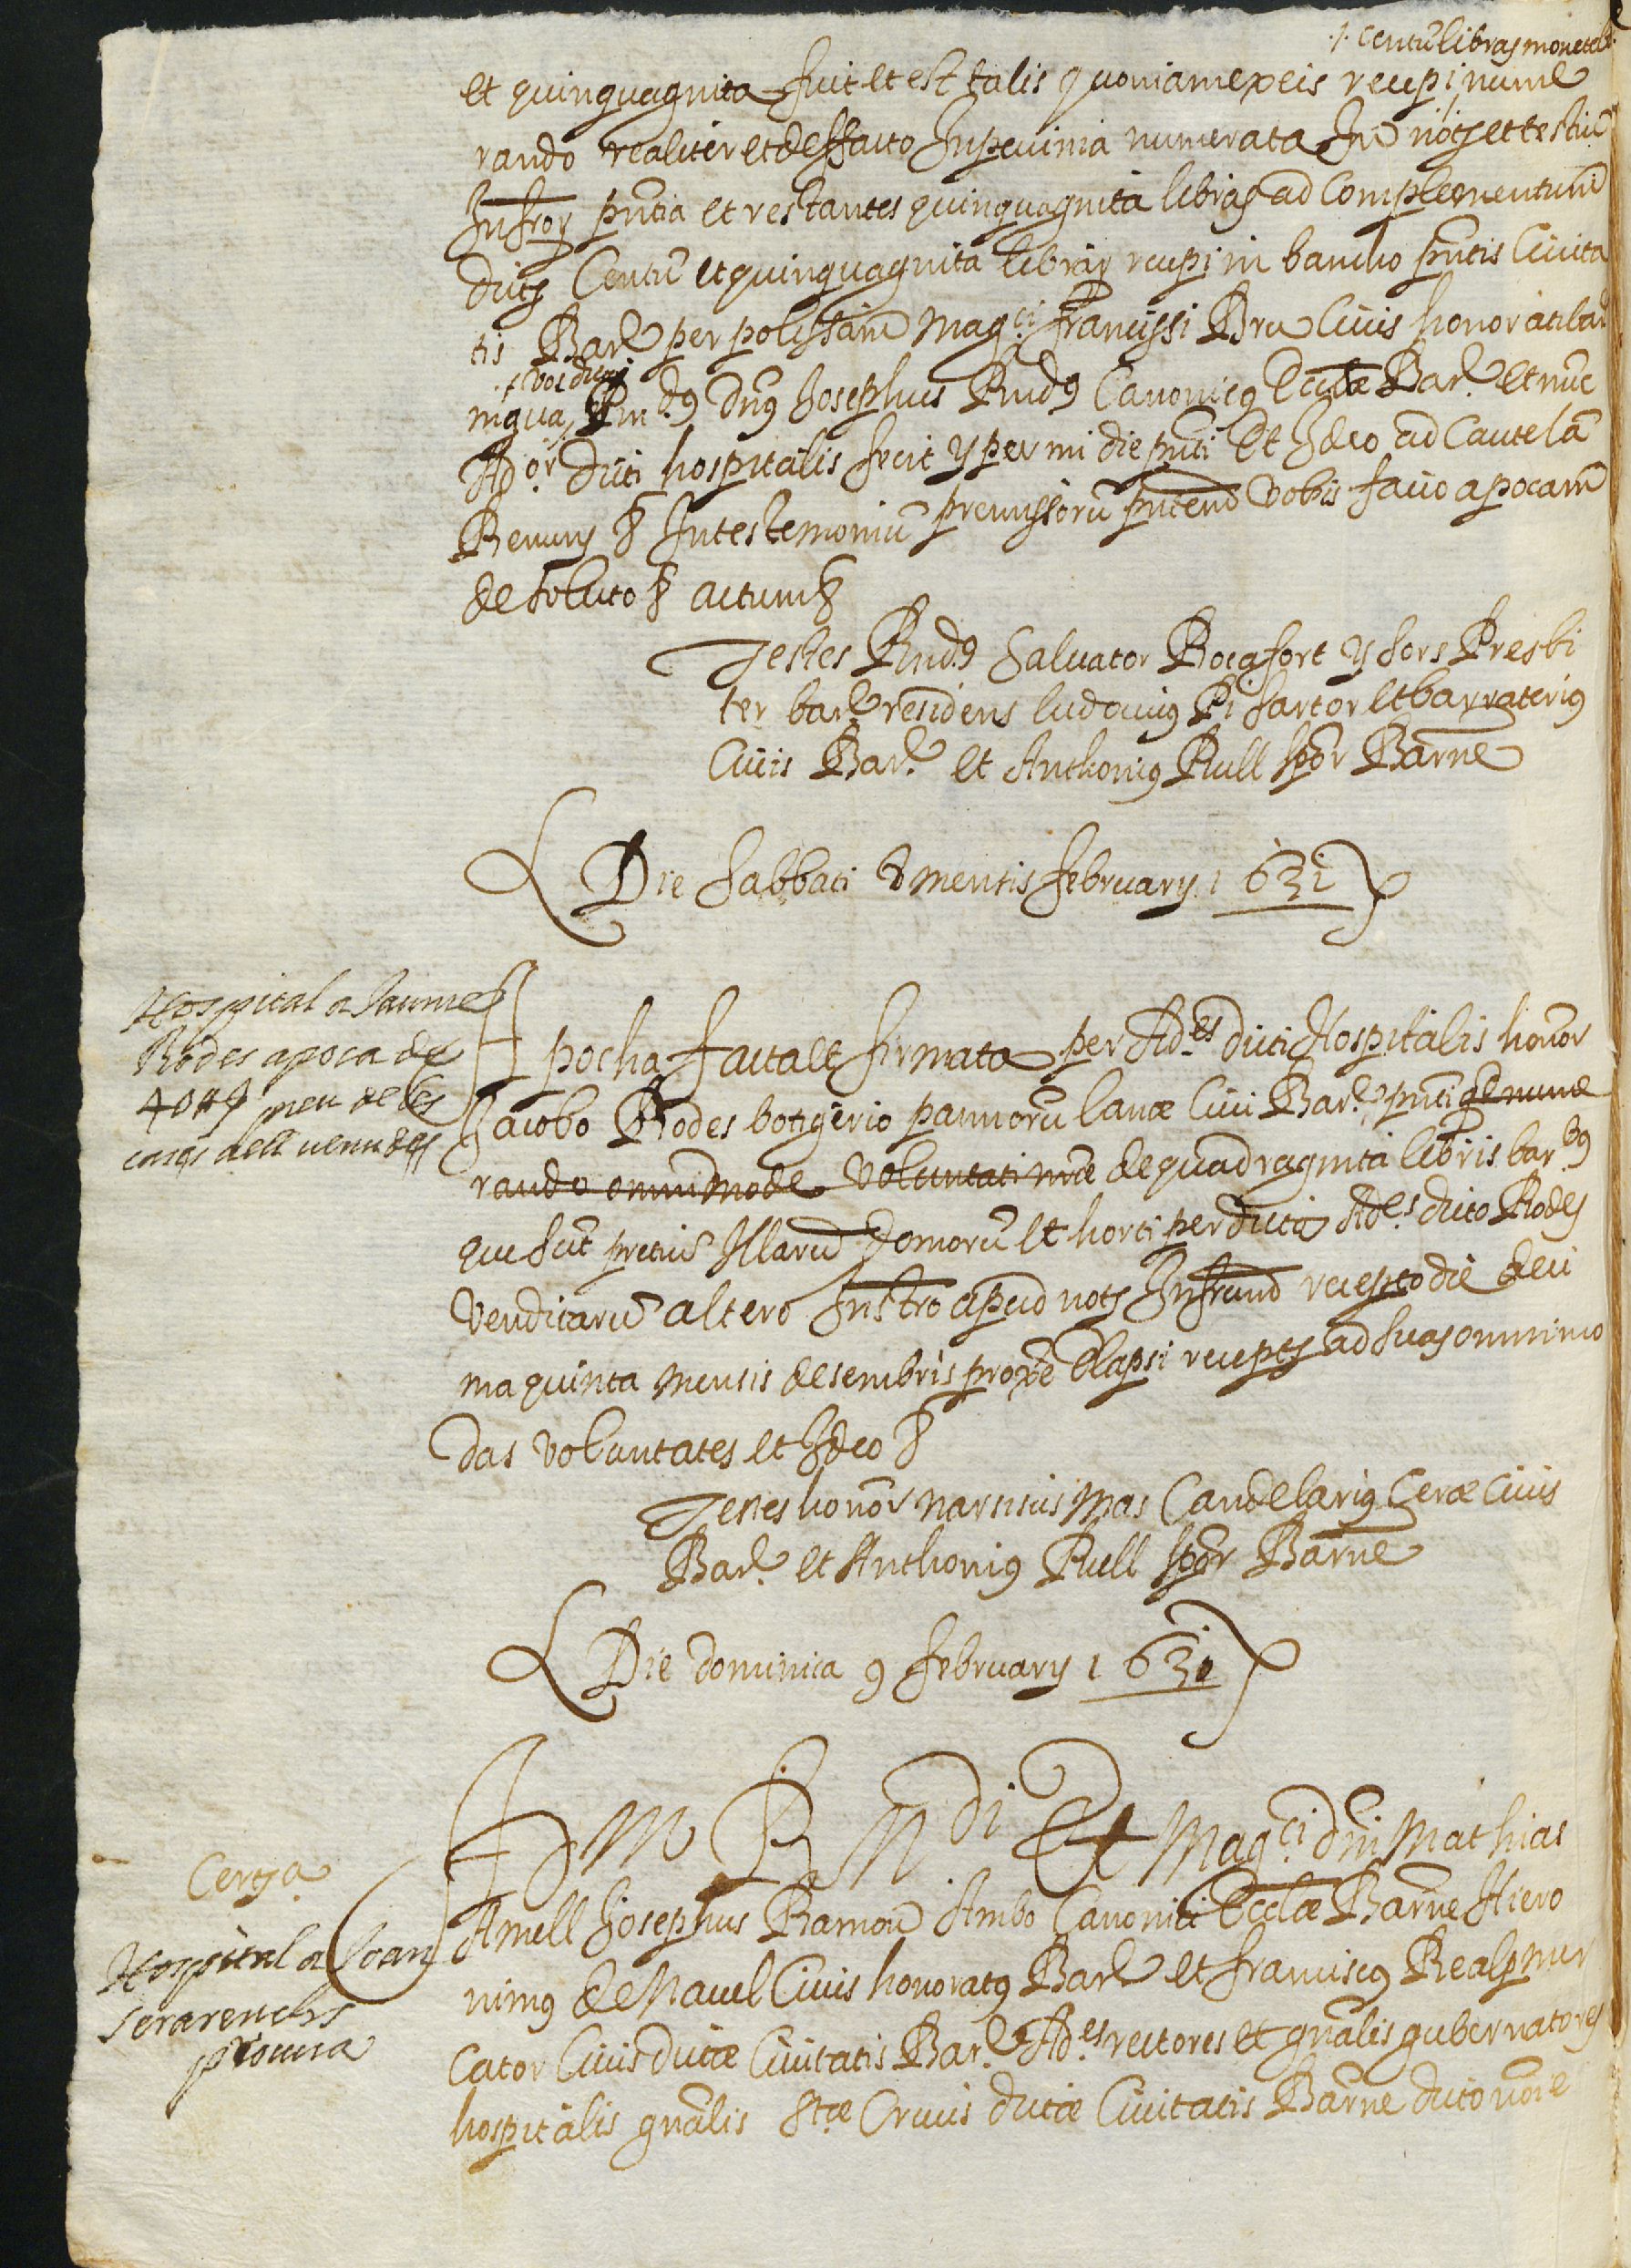 ·/· centũ libras monetæ b.
et quinquaginta fuit et est talis quoniam ex eis recepi nume
rando realiter et de facto In pecunia numerata In nots et testiũ
Infror pntia et restantes quinquaginta libras ad complementum
dicts Centũ et quinquaginta librar recepi in bancho pntis Civita
tis Barne per polissam Magci. francissi Bru Civis honorati bar
·/· vos dictus
in qua, Rndꝰ Dnꝰ Josephus Rndꝰ Canonicꝰ Ecclæ Barne et nũc
Ador dicti hospitalis fecit y per mi die pnti Et Ideo ad Cautelã
Renuns & In testemoniũ premissorũ pntem vobis facio apocam
de soluto & actum &
Testes Rndꝰ Salvator Rocafort y sors Presbi
ter barne residens ludovicꝰ Pi sartor et barraterius
Civis Barne et Anthoniꝰ Rull scpr Barne
Die sabbati 8 mensis february 1631
Hospital a Jaume
Rodes apoca de
40 ll preu de les
casas dell venudas
Apocha facta et firmata per Ades dicti Hospitalis honor
Jacobo Rodes botigerio pannorũ lanæ Civi Barne pnti de nume
rando omnimode voluntati nræ de quadraginta libris barbꝰ
que sũt pretiũ Illarũ Domorũ et horti per dictos Ades dicto Rodes
venditarũ altero Instro apud nots Infrũm recepto die deci
ma quinta mensis desembris proxe elapsi recepts ad suas omnimo
das voluntates et Ideo &
Testes honor Narsisus Mas Candelariꝰ Ceræ Civis
Barne et Anthoniꝰ Rull scpr Barne
Die dominica 9 february 1631
Certa
Hospital a Joan
Serarenchs
procura
Adm Rndi Et Magci dni Mathias
Amell Josephus Ramon Ambo Canonici Ecclæ Barne Hiero
nimꝰ de Navel Civis honoratꝰ Barne et franciscꝰ Reals mer
cator Civis dictæ Civitatis Barne Ades rectores et gnalis gubernatores
hospitalis gnalis Stæ Crucis dictæ Civitatis Barne dicto noie